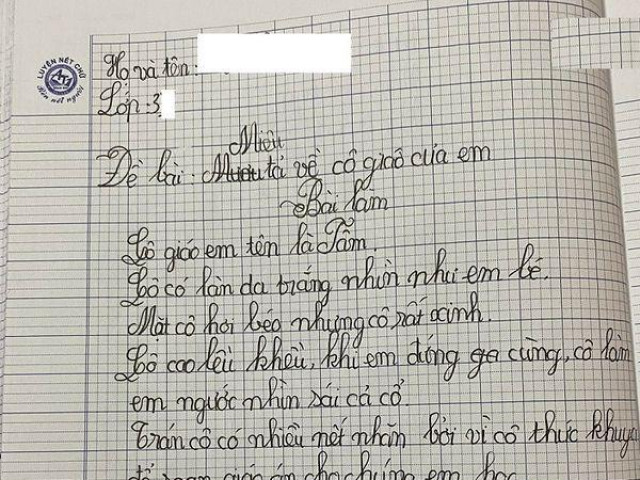 LUYỆN NÉT CHỮ
Rèn nết người
Họ và tên:
Lớp: 3
Miêu
Đề bài: Mươu tả về cô giáo của em
Bài làm
Cô giáo em tên là Tâm.
Cô có làn da trắng nhìn như em bé.
Mặt cô hơi béo nhưng cô rất xinh.
Cô cao lêu khêu, khi em đứng gą cùng, cô làm
em ngước nhìn sái cả cổ.
Trán cô có nhiều nết nhăn bởi vì cô thức khuya
để soạn giáo án cho chúng em học